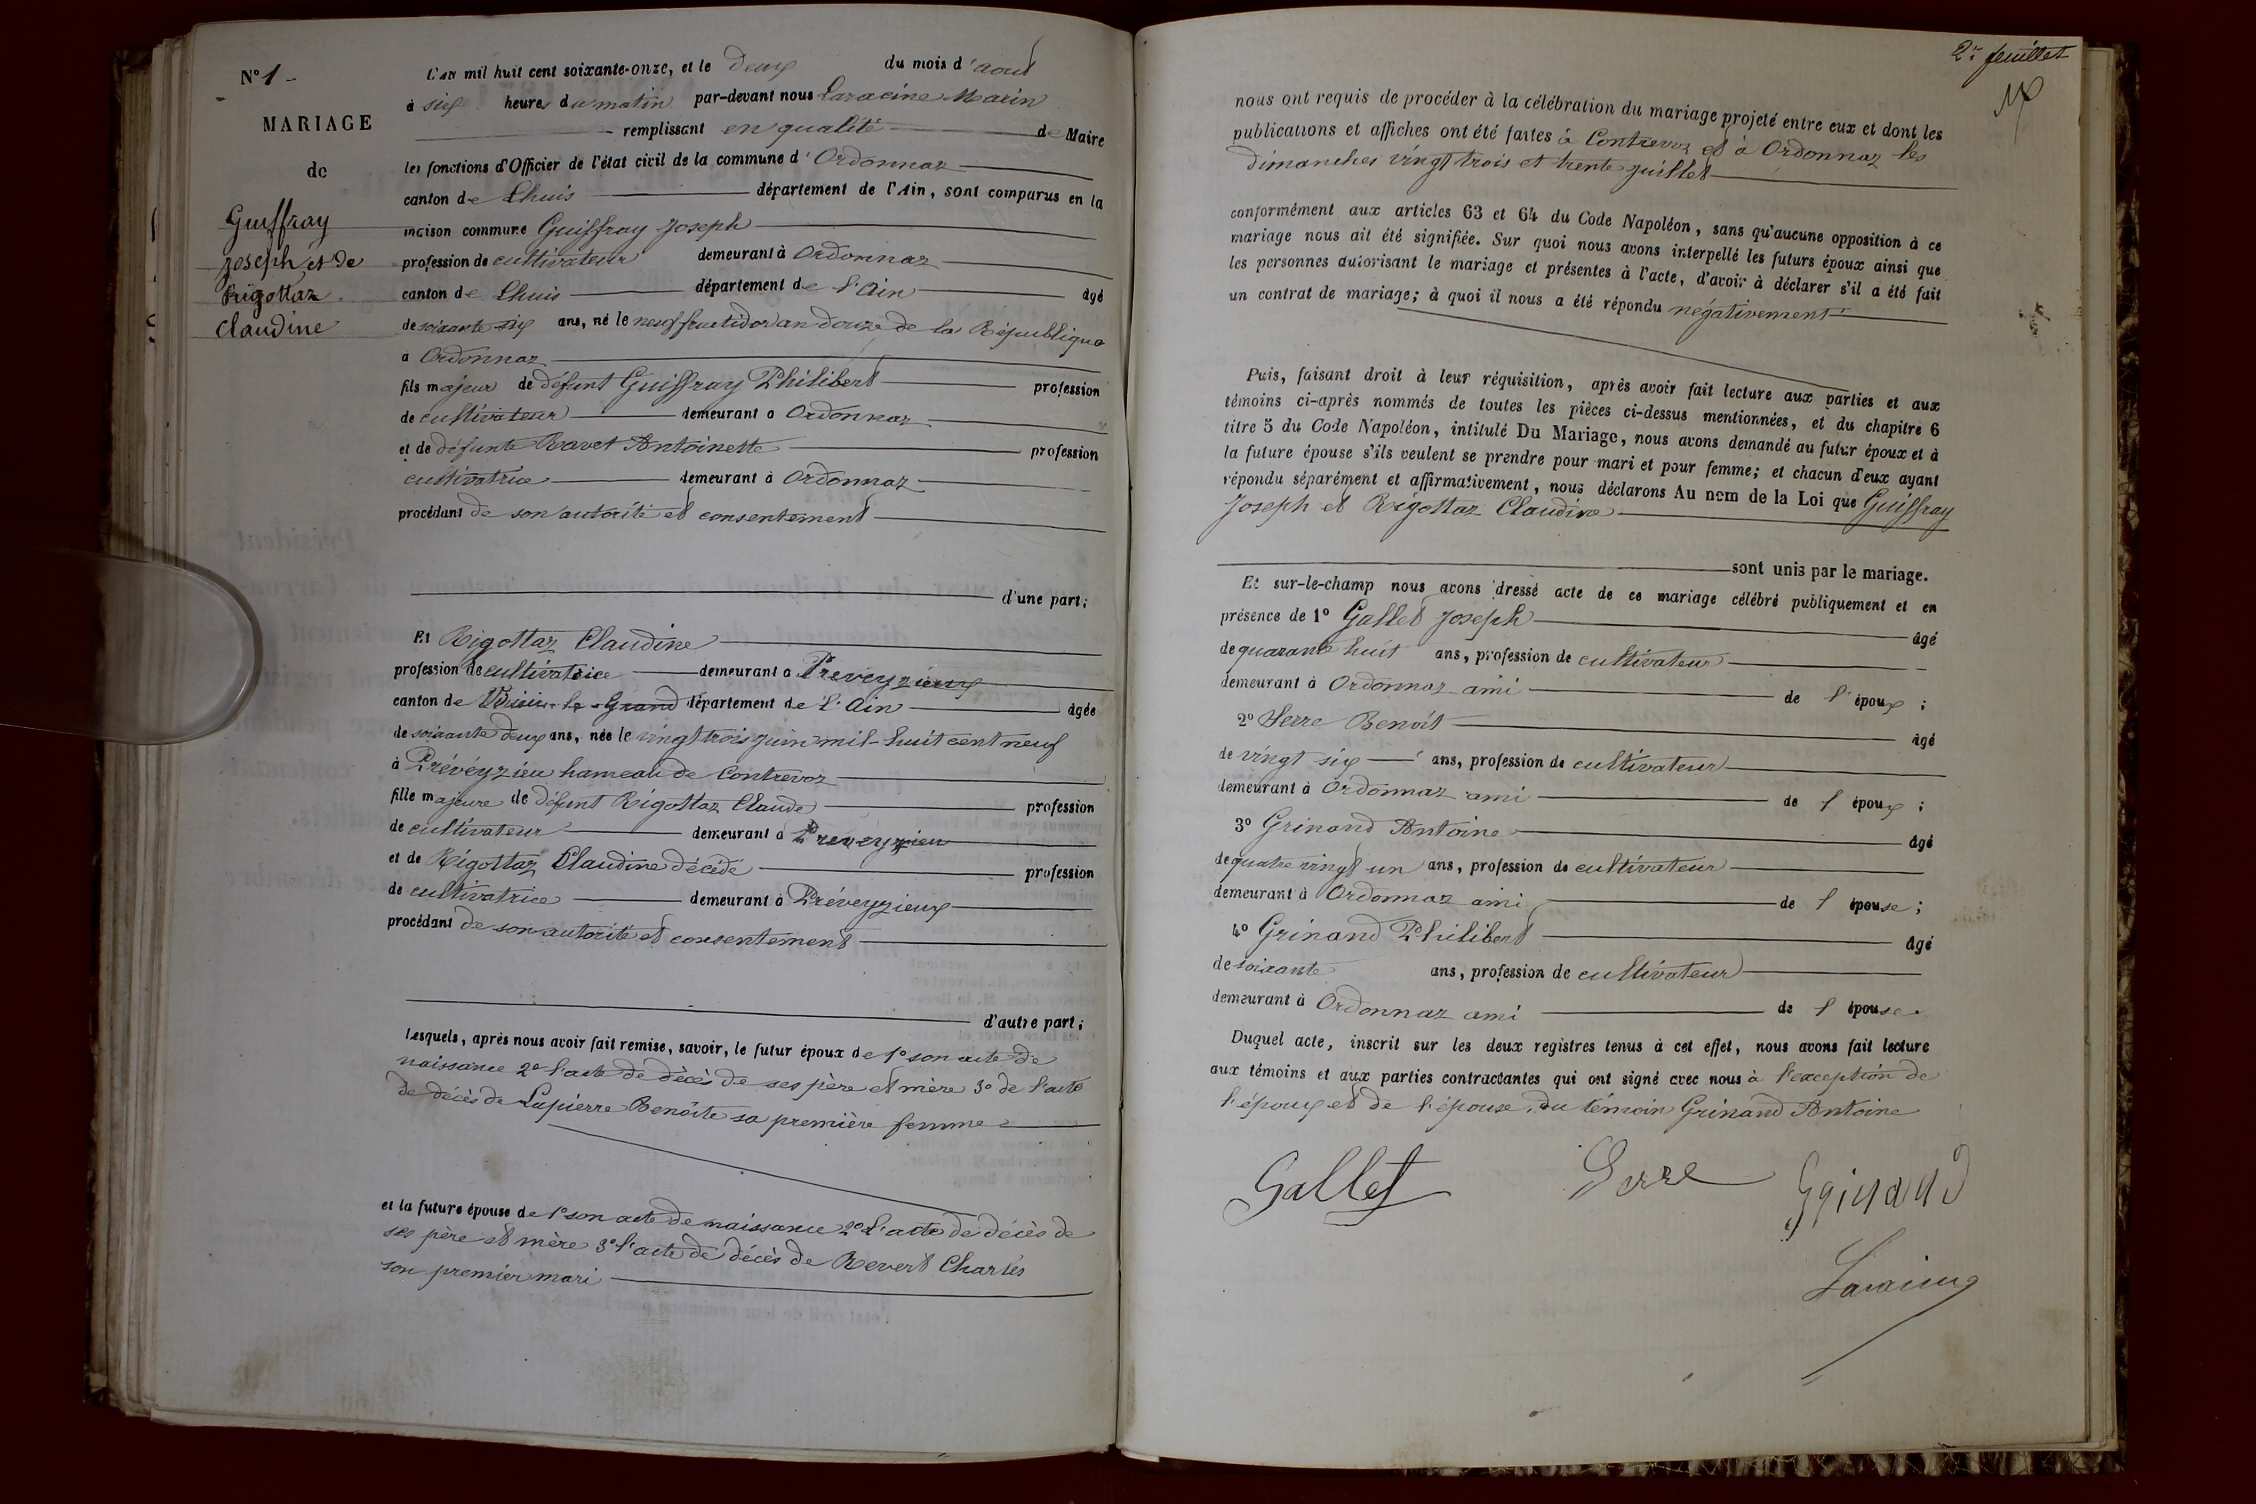 N° 1 -
MARIAGE
de
Guiffray
Joseph et de
Rigottaz
Claudine
L'an mil huit cent soixante-onze, et le deux du mois d'aout
à six heures du matin par-devant nous Laracine Marin
remplissant en qualité de Maire
les fonctions d'Officier de l'état civil de la commune d'Ordonnaz
canton de Lhuis département de l'Ain, sont comparus en la
maison commune Guiffray Joseph
profession de cultivateur demeurant à Ordonnaz
canton de Lhuis département de l'Ain âgé
de soixante six ans, né le neuf fructidor an douze de la République
à Ordonnaz
fils majeur de défunt Guiffray Philibert profession
de cultivateur demeurant à Ordonnaz
et de défunte Ravet Antoinette profession
cultivatrice demeurant à Ordonnaz
procédant de son autorité et consentement
d'une part;
Et Rigottaz Claudine
profession de cultivatrice demeurant à Preveyzieux
canton de Virieu-le-Grand département de l'Ain âgée
de soixante deux ans, née le vingt trois juin mil-huit cent neuf
à Prévéyzieu hameau de Contrevoz
fille majeure de défunt Rigottaz Claude profession
de cultivateur demeurant à Preveyzieu
et de Rigottaz Claudine décédé profession
de cultivatrice demeurant à Prévéyzieux
procédant de son autorité et consentement
d'autre part;
Lesquels, après nous avoir fait remise, savoir, le futur époux de 1° son acte de
naissance 2° l'acte de décès de ses père et mère 3° de l'acte
de décès de Lapierre Benoîte sa première femme
et la future épouse de 1° son acte de naissance 2° l'acte de décès de
ses père et mère 3° l'acte de décès de Revert Charles
son premier mari
2e feuillet
nous ont requis de procéder à la célébration du mariage projeté entre eux et dont les
publications et affiches ont été faites à Contrevoz et à Ordonnaz les
dimanches vingt trois et trente juillet
conformément aux articles 63 et 64 du Code Napoléon, sans qu'aucune opposition à ce
mariage nous ait été signifiée. Sur quoi nous avons interpellé les futurs époux ainsi que
les personnes autorisant le mariage et présentes à l'acte, d'avoir à déclarer s'il a été fait
un contrat de mariage; à quoi il nous a été répondu négativement
Puis, faisant droit à leur réquisition, après avoir fait lecture aux parties et aux
témoins ci-après nommés de toutes les pièces ci-dessus mentionnées, et du chapitre 6
titre 5 du Code Napoléon, intitulé Du Mariage, nous avons demandé au futur époux et à
la future épouse s'ils veulent se prendre pour mari et pour femme; et chacun d'eux ayant
répondu séparément et affirmativement, nous déclarons Au nom de la Loi que Guiffray
Joseph et Rigottaz Claudine
sont unis par le mariage.
Et sur-le-champ nous avons dressé acte de ce mariage célébré publiquement et en
présence de 1° Gallet Joseph âgé
de quarante huit ans, profession de cultivateur
demeurant à Ordonnaz ami de l'époux ;
2° Serre Benoît âgé
de vingt six ans, profession de cultivateur
demeurant à Ordonnaz ami de l'époux ;
3° Grinand Antoine âgé
de quatre vingt un ans, profession de cultivateur
demeurant à Ordonnaz ami de l'épouse ;
4° Grinand Philibert âgé
de soixante ans, profession de cultivateur
demeurant à Ordonnaz ami de l'épouse.
Duquel acte, inscrit sur les deux registres tenus à cet effet, nous avons fait lecture
aux témoins et aux parties contractantes qui ont signé avec nous à l'exception de
l'époux et de l'épouse, du témoin Grinand Antoine
Gallet Serre Grinand
Laracine